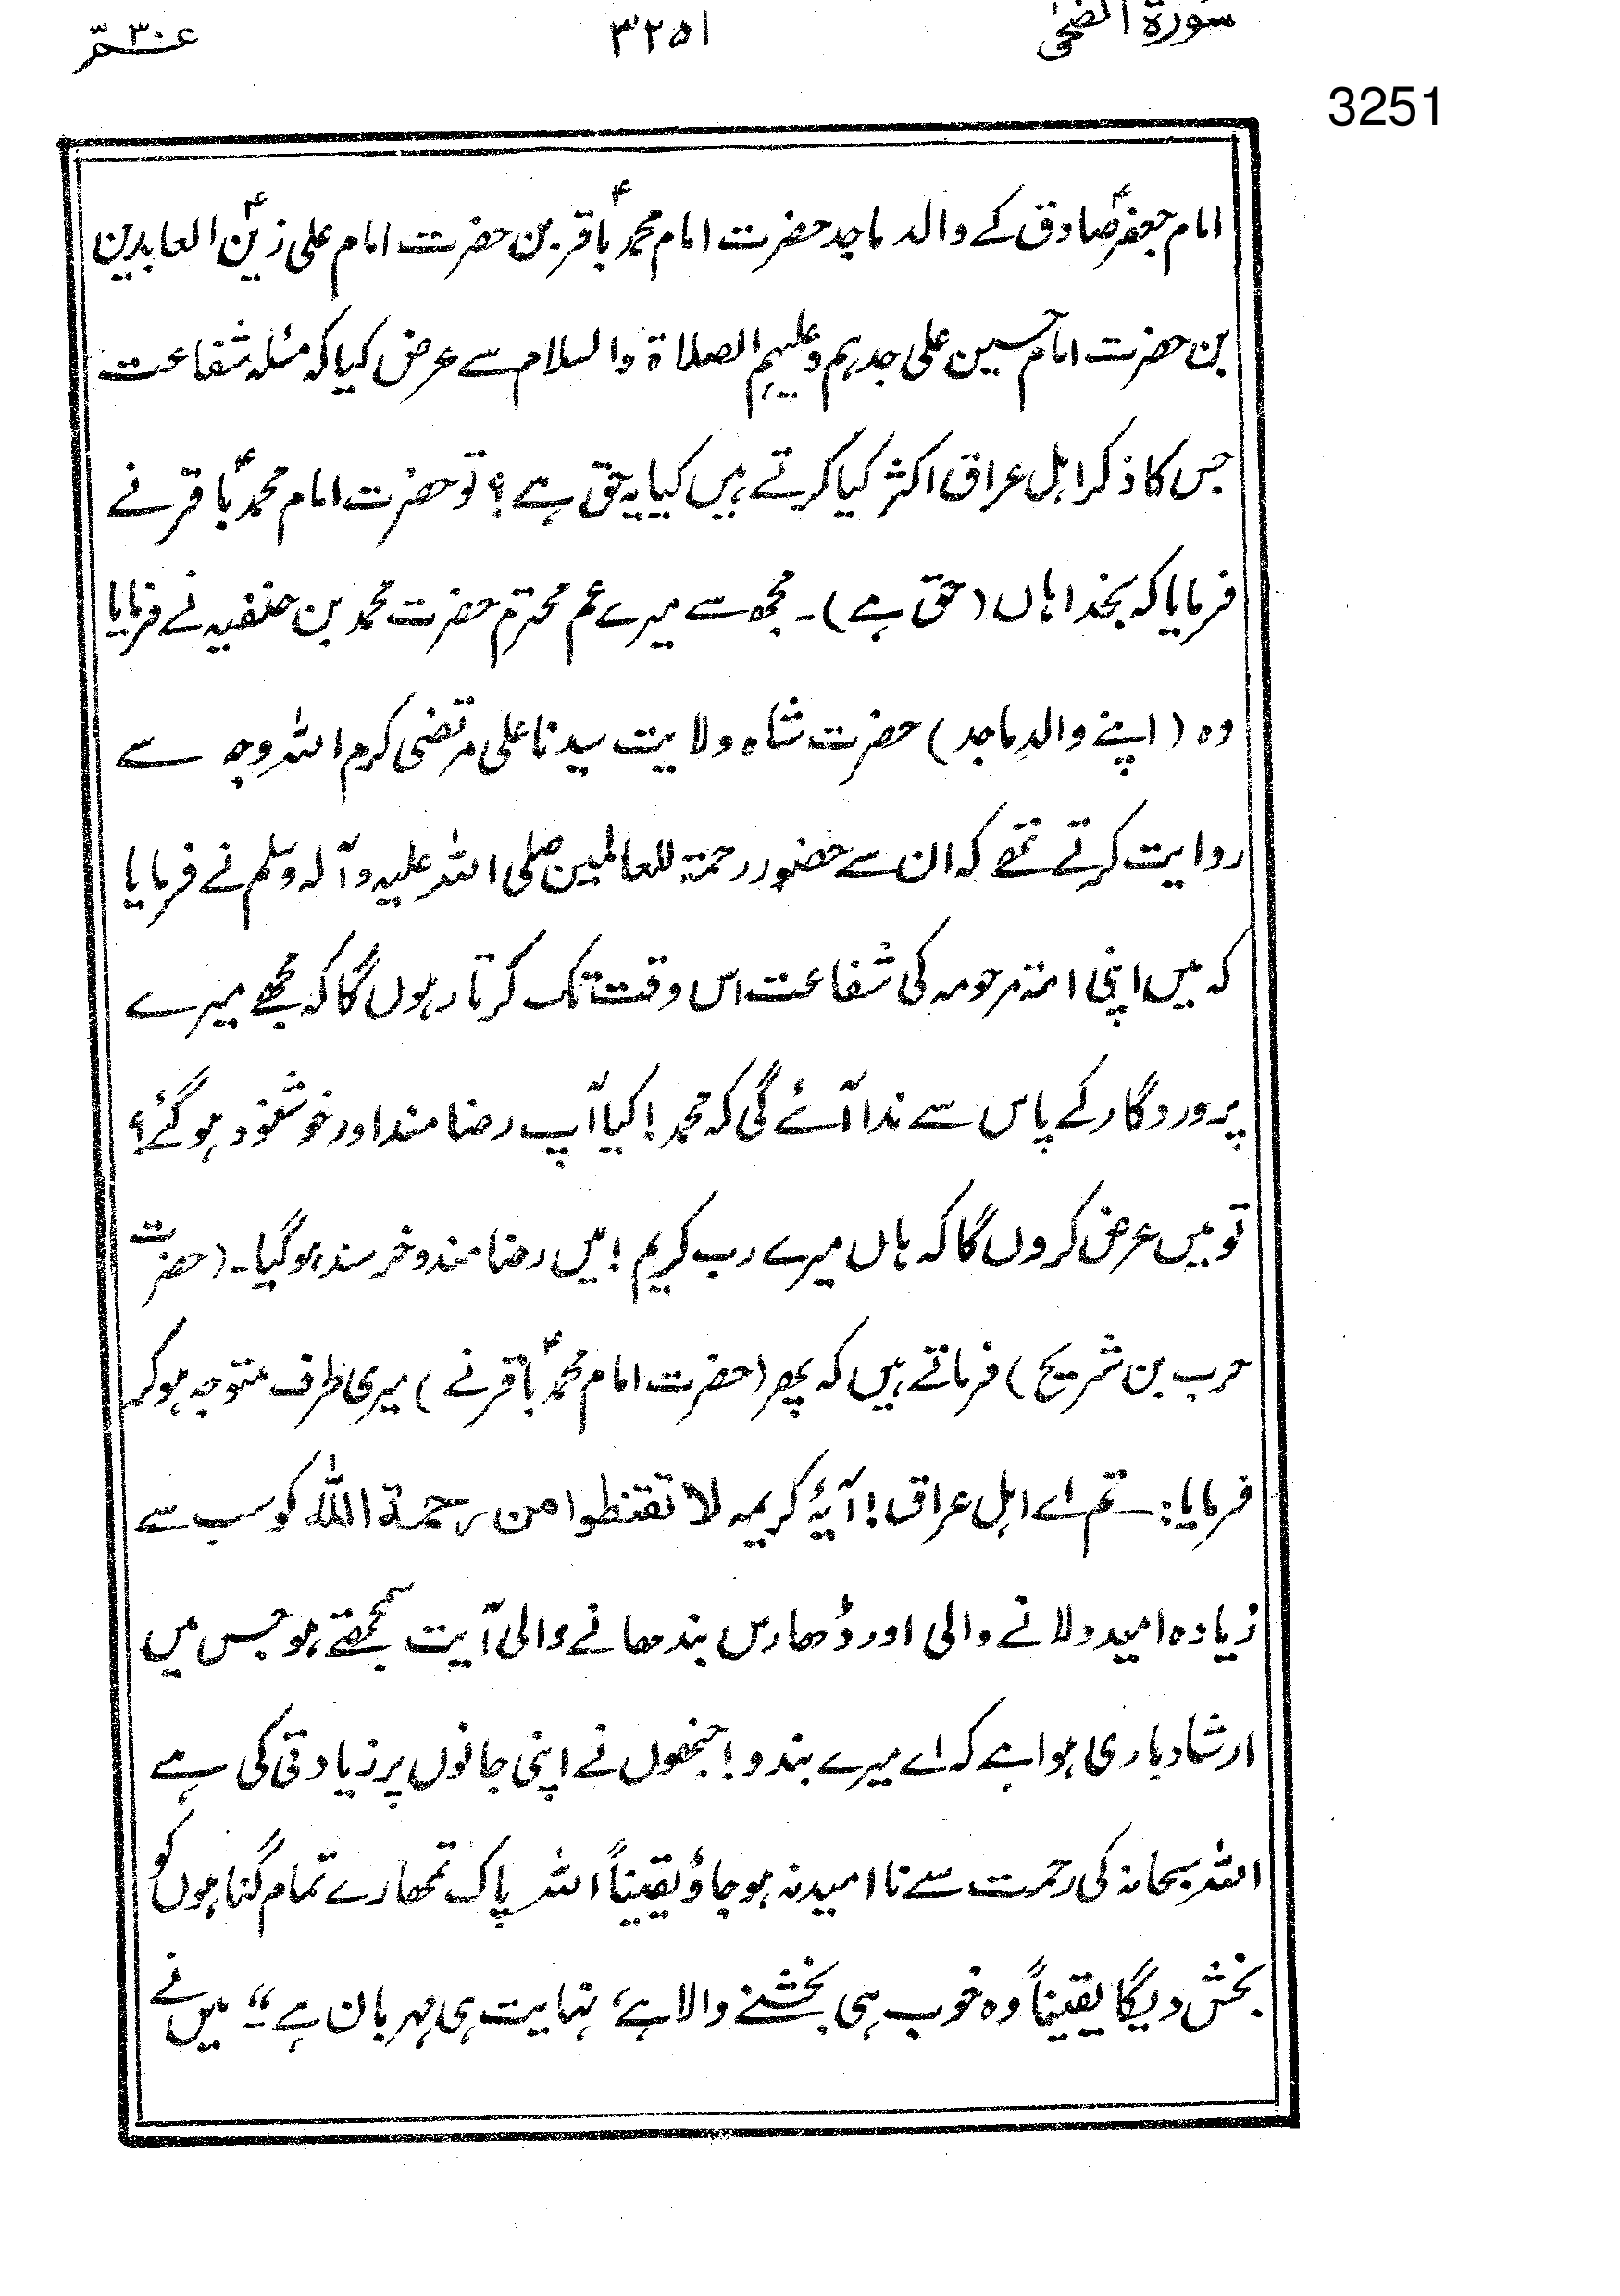 سورۃ الضحٰی ۳۲۵۱ عـــــم ۳۰
3251
امام جعفرؑ صادق کے والد ماجد حضرت امام محمدؑ باقر بن حضرت امام علی زینؑ العابدین
بن حضرت امام حسینؑ علی جدہم وعلیہم الصلاۃ والسلام سے عرض کیا کہ مسئلہ شفاعت
جس کا ذکر اہل عراق اکثر کیا کرتے ہیں کیا یہ حق ہے؟ تو حضرت امام محمدؑ باقر نے
فرمایا کہ بخدا ہاں (حق ہے)۔ مجھ سے میرے عم محترم حضرت محمد بن حنفیہ نے فرمایا
وہ (اپنے والدِ ماجد) حضرت شاہ ولایت سیدنا علی مرتضی کرم اللہ وجہ سے
روایت کرتے تھے کہ ان سے حضور رحمۃ للعالمین صلی اللہ علیہ وآلہ وسلم نے فرمایا
کہ میں اپنی امۃ مرحومہ کی شفاعت اس وقت تک کرتا رہوں گا کہ مجھے میرے
پروردگار کے پاس سے ندا آئے گی کہ محمد! کیا آپ رضامند اور خوشنود ہو گئے؟
تو میں عرض کروں گا کہ ہاں میرے رب کریم! میں رضامند و خرسند ہو گیا۔ (حضرت
حرب بن شریح) فرماتے ہیں کہ پھر (حضرت امام محمدؑ باقر نے) میری طرف متوجہ ہو کر
فرمایا: تم اے اہل عراق! آیۂ کریمہ لا تقنطوا من رحمۃ اللہ کو سب سے
زیادہ امید دلانے والی اور ڈھارس بندھانے والی آیت سمجھتے ہو جس میں
ارشاد باری ہوا ہے کہ اے میرے بندو! جنھوں نے اپنی جانوں پر زیادتی کی ہے
اللہ سبحانہ کی رحمت سے نا امید نہ ہو جاؤ یقیناً اللہ پاک تمھارے تمام گناہوں کو
بخش دیگا یقیناً وہ خوب ہی بخشنے والا ہے، نہایت ہی مہربان ہے“۔ میں نے